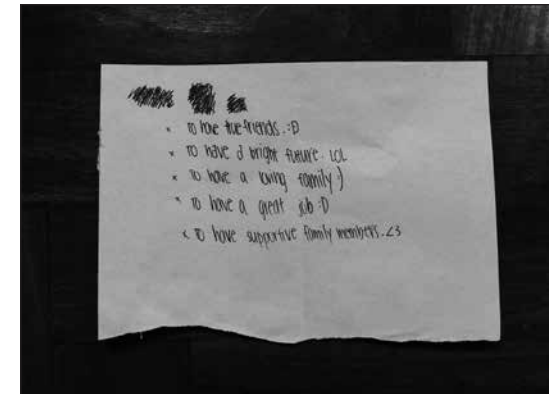 x To have true friends. :D
x To have a bright future. LOL
x To have a loving family :)
x To have a great job :D
x To have supportive family members. <3